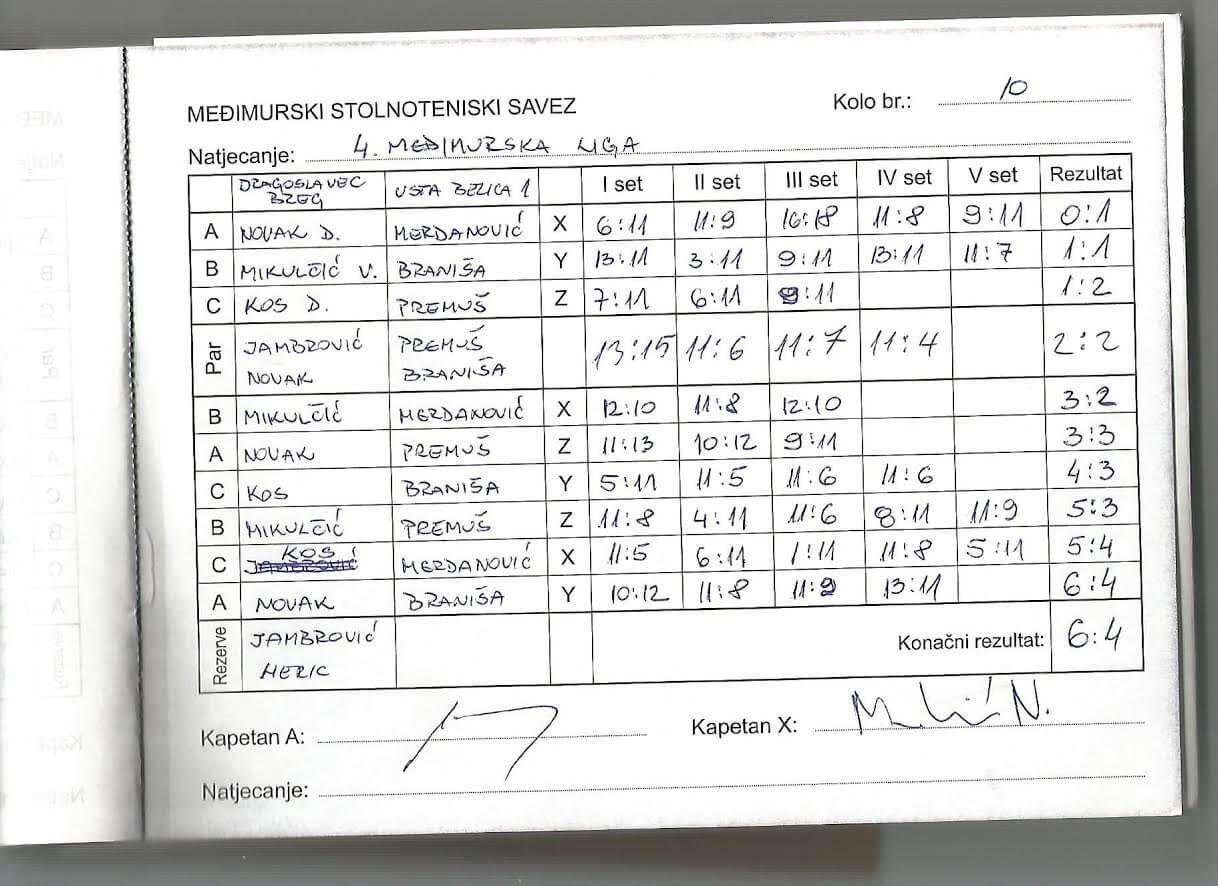 MEĐIMURSKI STOLNOTENISKI SAVEZ
Kolo br.: 10
Natjecanje: 4. MEĐIMURSKA LIGA
DRAGOSLAVEC BREG USTA BELICA 1 I set II set III set IV set V set Rezultat
A NOVAK D. MERDANOVIĆ X 6:11 11:9 16:18 11:8 9:11 0:1
B MIKULČIĆ V. BRANIŠA Y 13:11 3:11 9:11 13:11 11:7 1:1
C KOS D. PREMUŠ Z 7:11 6:11 9:11 1:2
Par JAMBROVIĆ PREMUŠ 13:15 11:6 11:7 11:4 2:2
NOVAK BRANIŠA
B MIKULČIĆ MERDANOVIĆ X 12:10 11:8 12:10 3:2
A NOVAK PREMUŠ Z 11:13 10:12 9:11 3:3
C KOS BRANIŠA Y 5:11 11:5 11:6 11:6 4:3
B MIKULČIĆ PREMUŠ Z 11:8 4:11 11:6 8:11 11:9 5:3
C KOS MERDANOVIĆ X 11:5 6:11 1:11 11:8 5:11 5:4
A NOVAK BRANIŠA Y 10:12 11:8 11:9 13:11 6:4
Rezerve JAMBROVIĆ Konačni rezultat: 6:4
HERIC
Kapetan A:
Kapetan X:
Natjecanje: